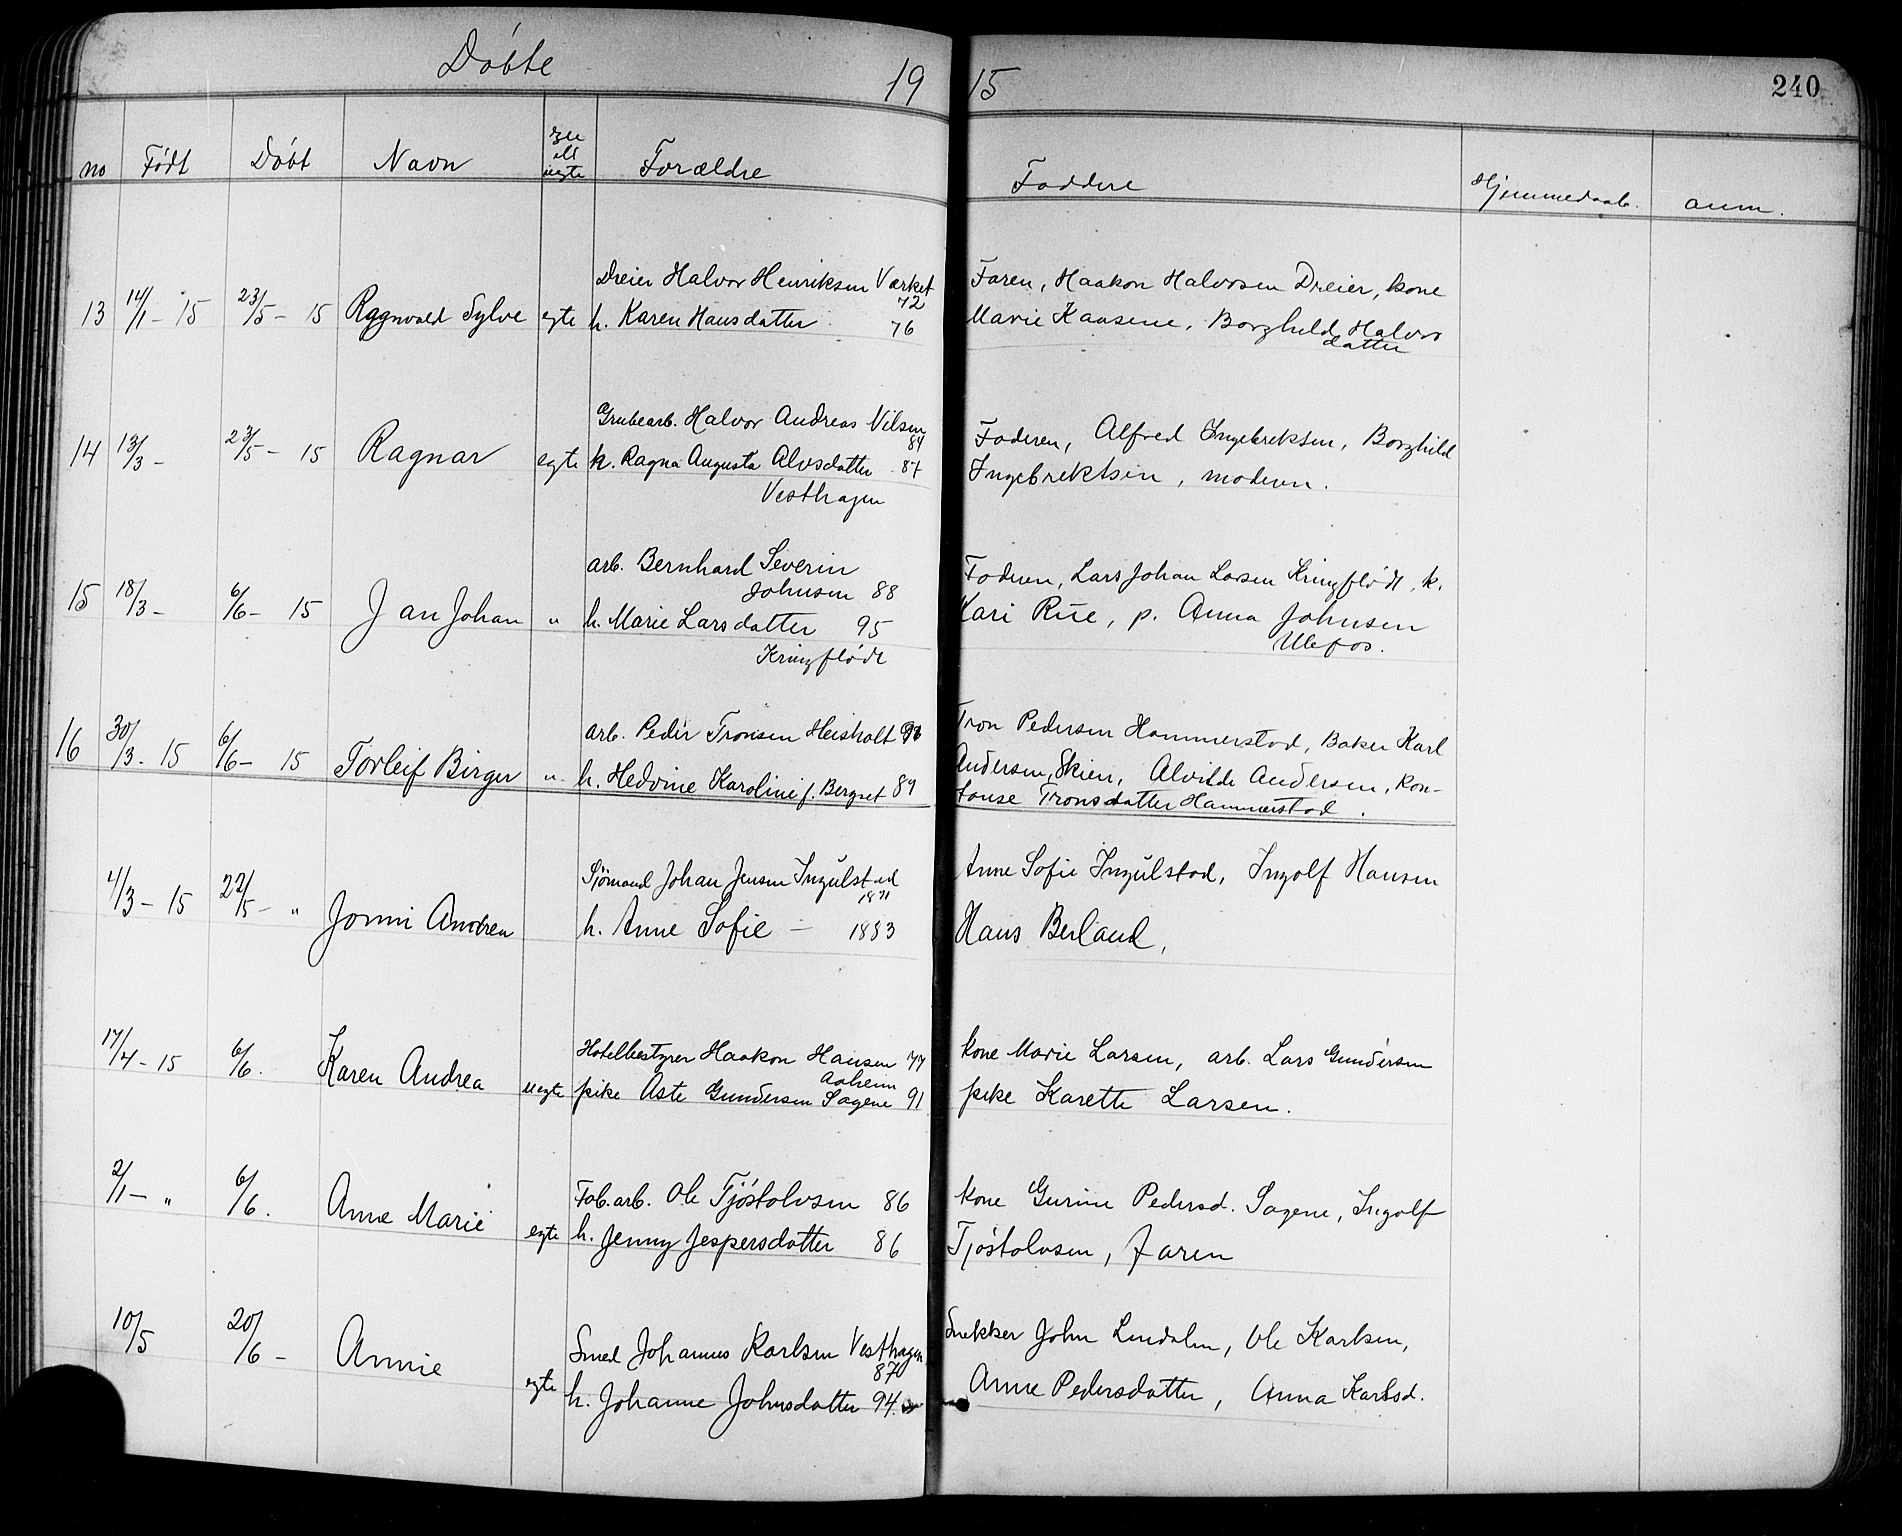 Döbte 1915 240
no Födt Döbt Navn egte ell uegte Forældre Faddere Hjemmedaab. anm.
Dreier Halvor Henriksen Værket 72 Faren, Haakon Halvorsen Dreier, kone
13 14/1 - 15 23/5 - 15 Ragnvald Sylve egte h. Karen Hansdatter 76 Marie Kaasene, Borghild Halvors
datter
Grubearb. Halvor Andreas Nilsen 84 Faderen, Alfred Ingebrektsen, Borghild
14 13/3 - 23/5 - 15 Ragnar egte k. Ragna Augusta Alvsdatter 87 Ingebrektsen, moderen.
Vesthagen
arb. Bernhard Severin Faderen, Lars Johan Larsen Kringflödt, k.
Johnsen 88
15 18/3 - 6/6 - 15 Jan Johan " h. Marie Larsdatter 95 Kari Rue, p. Anna Johnsen
Kringflödt Ulefos.
arb. Peder Tronsen Heisholt Tron Pedersen Hammerstad, Baker Karl
16 30/3 - 15 6/6 - 15 Torleif Birger " h. Hedvine Karoline f. Berget 89 Andersen, Skien, Alvilde Andersen, Kon-
stanse Tronsdatter Hammerstad.
Sjömand Johan Jensen Ingulstad Anne Sofie Ingulstad, Ingolf Hansen
1871
4/3 - 15 22/5 - " Jonni Andrea h. Anne Sofie - 1883 Hans Berland,
Hotelbestyrer Haakon Hansen 77 kone Marie Larsen, arb. Lars Gundersen
Aaheim
17/4 - 15 6/6. Karen Andrea uegte pike Aste Gundersen Sagene 91 pike Karette Larsen.
Fab. arb. Ole Tjöstolvsen 86 kone Gurine Pedersd. Sagene, Ingolf
2/1 - " 6/6. Anne Marie egte h. Jenny Jespersdatter 86 Tjöstolvsen, faren
Smed Johannes Karlsen Vesthagen 87 Snekker John Lindalen, Ole Karlsen,
10/5 20/6 - Annie egte h. Johanne Johnsdatter 94. Anne Pedersdatter, Anna Karlsd.